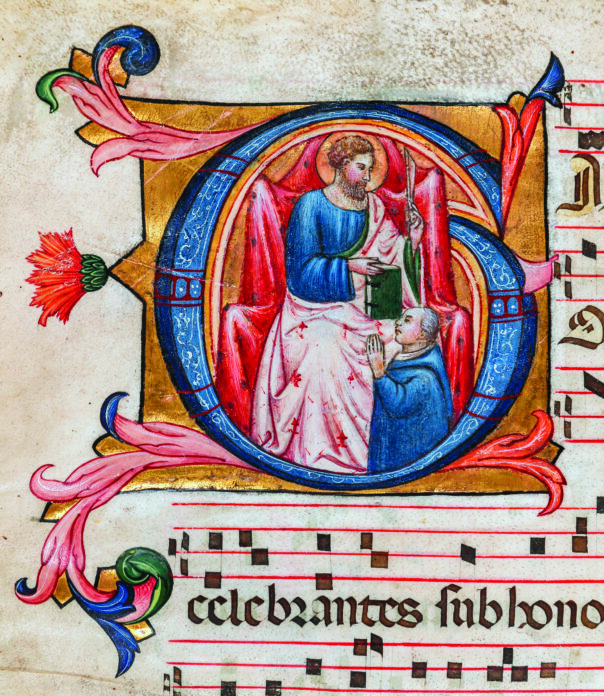 G
celebrantes sub hono